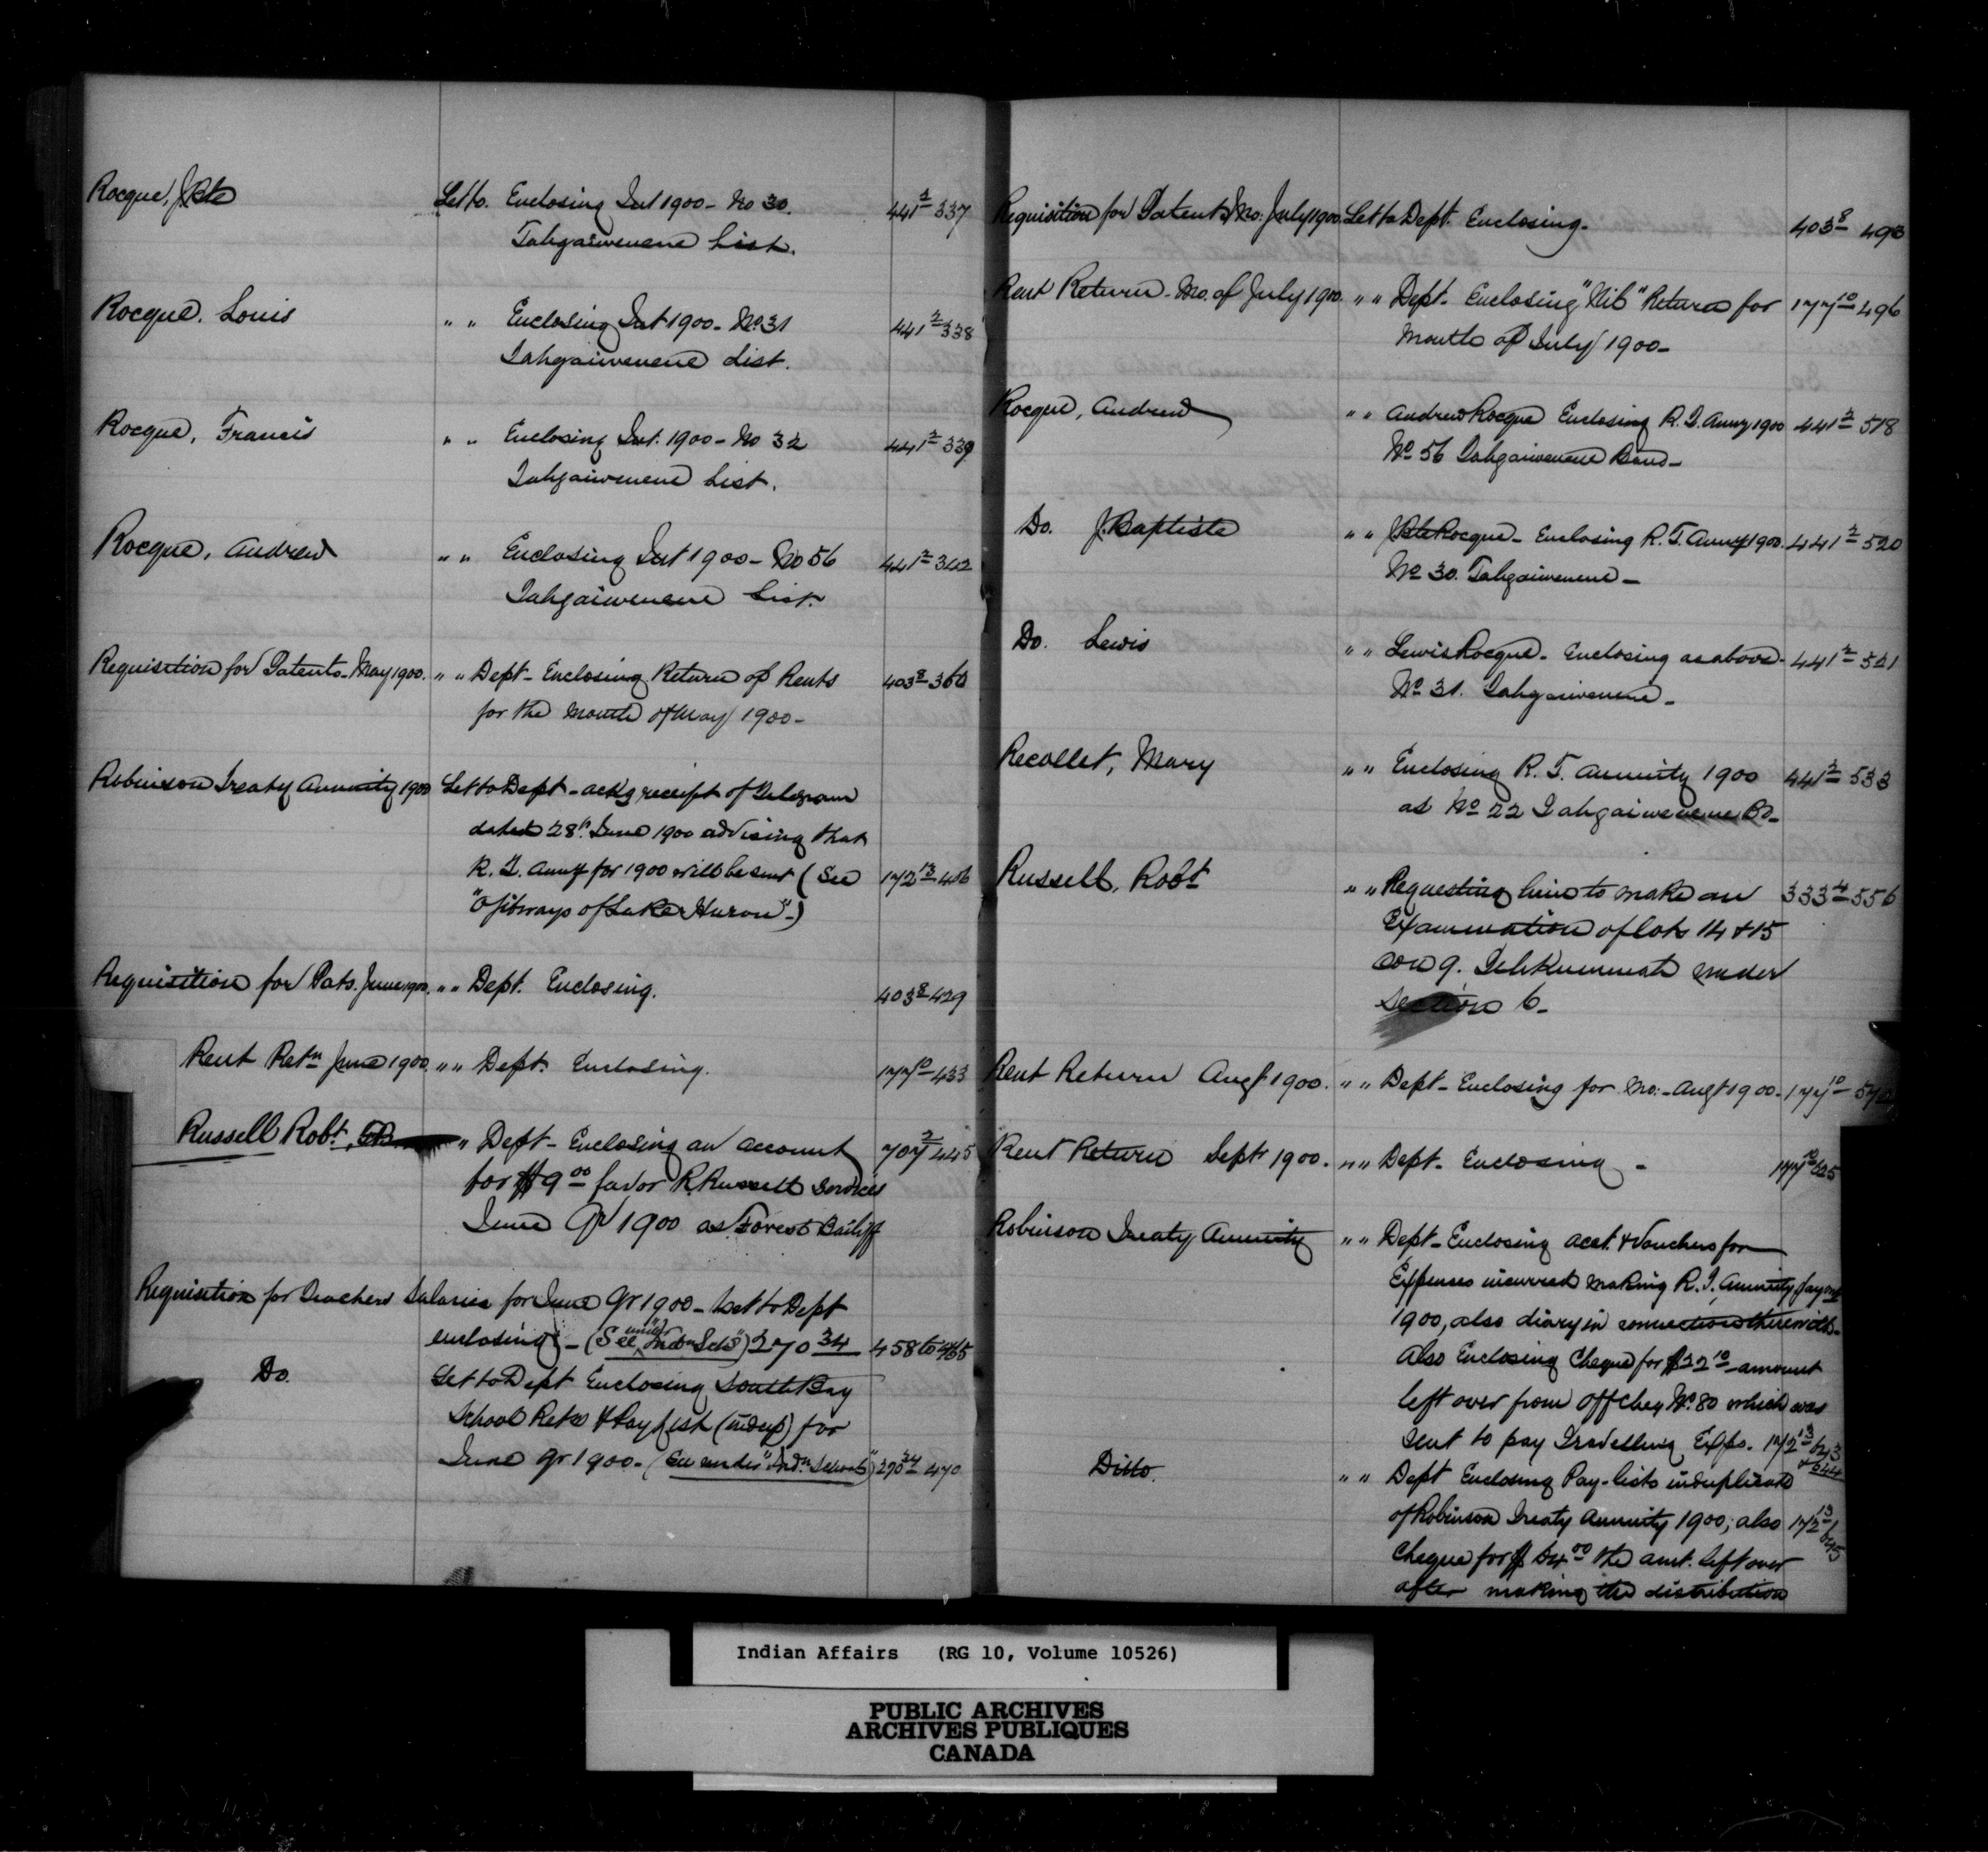 Rocque, J. Bte Let to. Enclosing Int 1900 - No 30. 441 2/ 337
Tahgaiwenene List.
Rocque, Louis " " Enclosing Int 1900 - No 31 441 2/ 338
Tahgaiwenene List.
Rocque, Francis " " Enclosing Int. 1900 - No 32 441 2/ 339
Tahgaiwenene List.
Rocque, Andrew " " Enclosing Int 1900 - No 56 441 2/ 342
Tahgaiwenene List.
Requisition for Patents - May 1900. " " Dept - Enclosing Return of Rents 403 8/ 360
for the month of May 1900 -
Robinson Treaty Annuity 1900 Let to Dept - ackg receipt of Telegram
dated 28th June 1900 advising that
R. T. Anny for 1900 will be sent (See 172 13/ 406
"Ojibways of Lake Huron" -)
Requisition for Pats. June 1900. " " Dept. Enclosing. 403 8/ 429
Rent Retn June 1900. " " Dept. Enclosing. 177 10/ 433
Russell Robt " Dept - Enclosing an account 707 2/ 445
for $9 00 favor R. Russell services
June Qr 1900 as Forest Bailiff
Requisition for Teachers Salaries for June Qr 1900 - Let to Dept
enclosing - (See under "Indn Schs") 270 34 458 to 465
Do. Let to Dept Enclosing South Bay
School Retn & Pay List (in dup) for
June Qr 1900 - (See under "Indn Schools") 270 34 470
Requisition for Patents Mo: July 1900. Let to Dept. Enclosing. 403 8/ 493
Rent Return - Mo. of July 1900. " " Dept - Enclosing "Nil" Return for 177 10/ 496
Month of July 1900 -
Rocque, Andrew " " Andrew Rocque Enclosing R. T. Anny 1900 441 2/ 518
No 56 Tahgaiwenene Band -
Do. J. Baptiste " " J. Bte Rocque - Enclosing R. T. Anny 1900. 441 2/ 520
No 30. Tahgaiwenene -
Do. Lewis " " Lewis Rocque - Enclosing as above - 441 2/ 521
No 31. Tahgaiwenene -
Recollet, Mary " " Enclosing R. T. Annuity 1900 441 2/ 533
as No 22 Tahgaiwenene Bd -
Russell, Robt " " Requesting him to make an 333 4/ 556
Examination of lots 14 & 15
con 9. Tehkummah under
section 6 -
Rent Return Augt 1900. " " Dept - Enclosing for Mo: - Augt 1900 - 177 10/
Rent Return Septr 1900. " " Dept - Enclosing - 177 10/ 625
Robinson Treaty Annuity " " Dept - Enclosing acct. & Vouchers for
Expenses incurred making R. T. Annuity paymt
1900, also diary in connection therewith -
Also Enclosing Cheque for $22 10 amount
left over from off cheq No 80 which was
sent to pay Travelling Exps. 172 13/ 643
& 644
Ditto. " " Dept Enclosing Pay-lists in duplicate
of Robinson Treaty Annuity 1900; also 172 13/ 645
Cheque for $ 54 00 the amt. left over
after making the distribution
Indian Affairs (RG 10, Volume 10526)
PUBLIC ARCHIVES
ARCHIVES PUBLIQUES
CANADA